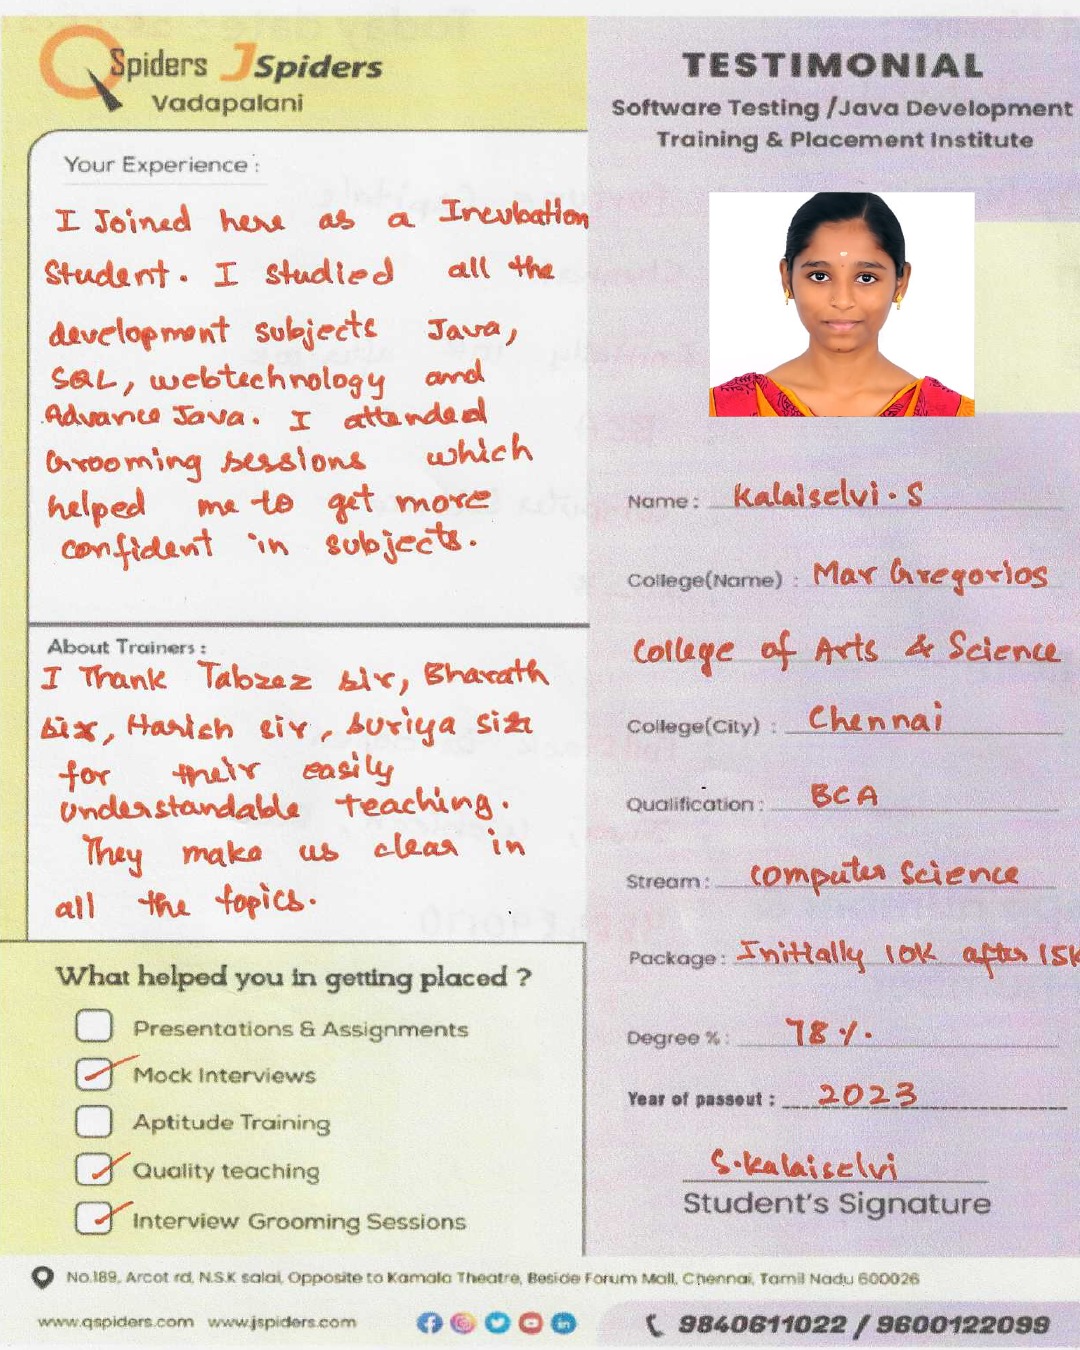 QSpiders JSpiders
Vadapalani
TESTIMONIAL
Software Testing /Java Development
Training & Placement Institute
Your Experience :
I Joined here as a Incubation
Student. I studied all the
development subjects Java,
SQL, webtechnology and
Advance Java. I attended
Grooming sessions which
helped me to get more
confident in subjects.
About Trainers :
I Thank Tabzez sir, Bharath
sir, Harish sir, Suriya sir
for their easily
understandable teaching.
They make us clear in
all the topics.
What helped you in getting placed ?
Presentations & Assignments
Mock Interviews
Aptitude Training
Quality teaching
Interview Grooming Sessions
Name : Kalaiselvi.S
College(Name) : Mar Gregorios
College of Arts & Science
College(City) : Chennai
Qualification : BCA
Stream : Computer Science
Package : Initially 10K after 15K
Degree % : 78 %.
Year of passout : 2023
S.Kalaiselvi
Student's Signature
No.189, Arcot rd, N.S.K salai, Opposite to Kamala Theatre, Beside Forum Mall, Chennai, Tamil Nadu 600026
www.qspiders.com www.jspiders.com
9840611022 / 9600122099